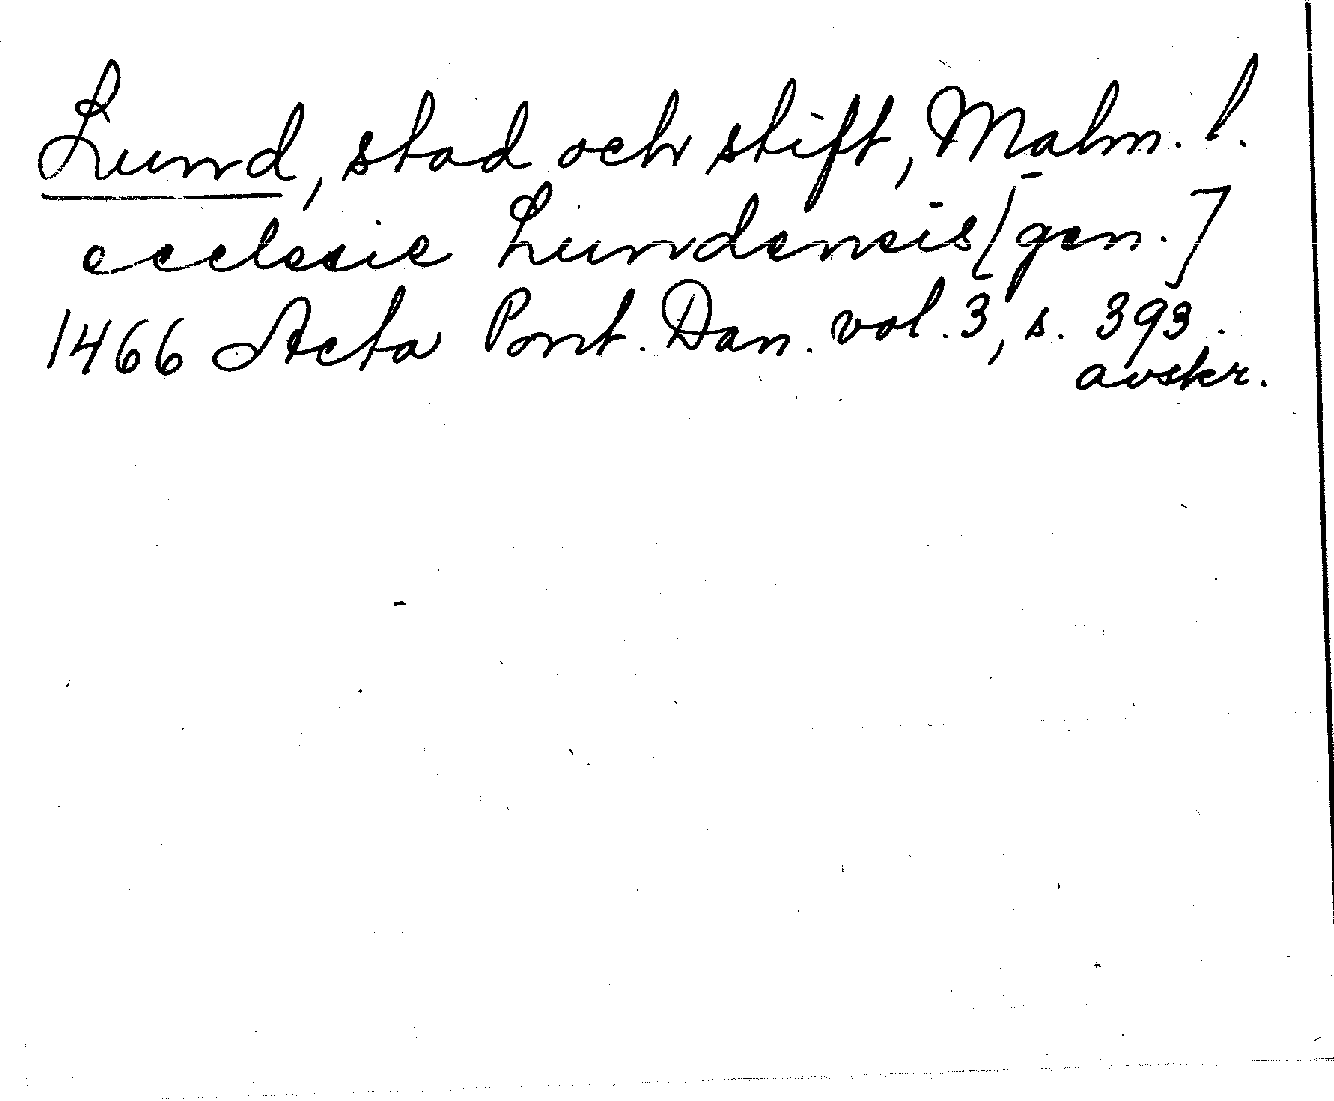 Lund, stad och stift, Malm. l.
ecclesie Lundensis [gen.]
1466 Acta Pont. Dan. vol. 3, s. 393.
avskr.